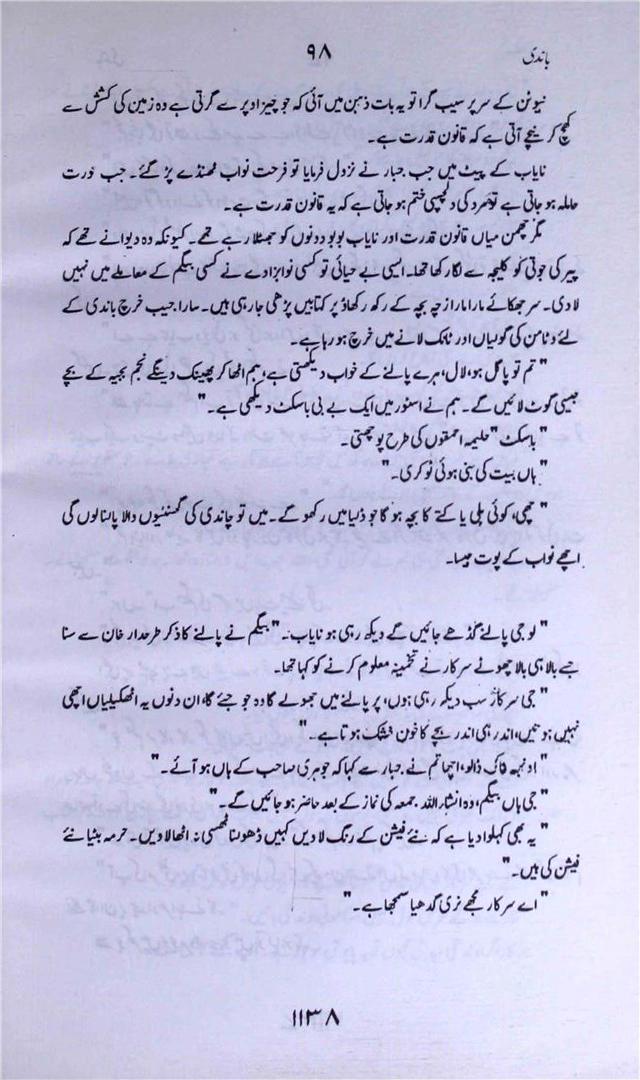 باندی
۹۸
نیوٹن کے سر پر سیب گرا تو یہ بات ذہن میں آئی کہ جو چیز اوپر سے گرتی ہے وہ زمین کی کشش سے
کھچ کر نیچے آتی ہے کہ قانون قدرت ہے۔
نایاب کے پیٹ میں جب جبار نے نزول فرمایا تو فرحت نواب ٹھنڈے پڑ گئے۔ جب عورت
حاملہ ہو جاتی ہے تو مرد کی دلچسپی ختم ہو جاتی ہے کہ یہ قانون قدرت ہے۔
مگر چھمن میاں قانون قدرت اور نایاب بوبو دونوں کو جھٹلا رہے تھے۔ کیونکہ وہ دیوانے تھے کہ
پیر کی جوتی کو کلیجہ سے لگا رکھا تھا۔ ایسی بے حیائی تو کسی نوابزادے نے کسی بیگم کے معاملے میں نہیں
لادی۔ سر جھکائے مارا مارا زچہ بچہ کے رکھ رکھاؤ پر کتابیں پڑھی جا رہی ہیں۔ سارا جیب خرچ باندی کے
لئے وٹامن کی گولیاں اور ٹانک لانے میں خرچ ہو رہا ہے۔
"تم تو پاگل ہو، لال، ہرے پالنے کے خواب دیکھتی ہے، ہم اٹھا کر پھینک دینگے نجم بجیہ کے بچے
جیسی گوٹ لائیں گے۔ ہم نے اسٹور میں ایک بے بی باسکٹ دیکھی ہے۔"
"باسکٹ" حلیمہ احمقوں کی طرح پوچھتی۔
"ہاں بیت کی بنی ہوئی ٹوکری۔"
"چھی، کوئی بلی یا کتے کا بچہ ہو گا جو ڈلیا میں رکھو گے۔ میں تو چاندی کی گھنٹیوں والا پالنا لوں گی
اچھے نواب کے پوت جیسا۔
"لو جی پالنے گڈھے جائیں گے دیکھ رہی ہو نایاب۔" بیگم نے پالنے کا ذکر طرحدار خان سے سنا
جسے بالا ہی بالا چھوٹے سرکار نے تخمینہ معلوم کرنے کو کہا تھا۔
"جی سرکار سب دیکھ رہی ہوں، پر پالنے میں جھولے گا وہ جو جئے گا، ان دنوں یہ اٹھکیلیاں اچھی
نہیں ہوتیں، اندر ہی اندر بچے کا خون خشک ہوتا ہے۔"
"اونہہ خاک ڈالو، اچھا تم نے جبار سے کہا کہ جوہری صاحب کے ہاں ہو آئے۔"
"جی ہاں بیگم، وہ انشاء اللہ جمعہ کی نماز کے بعد حاضر ہو جائیں گے۔"
"یہ بھی کہلوا دیا ہے کہ نئے فیشن کے رنگ لادیں کہیں ڈھولنا ٹھسی نہ اٹھا لادیں۔ حرمہ بٹیا نئے
فیشن کی ہیں۔"
"اے سرکار مجھے نری گدھیا سمجھا ہے۔"
۱۱۳۸